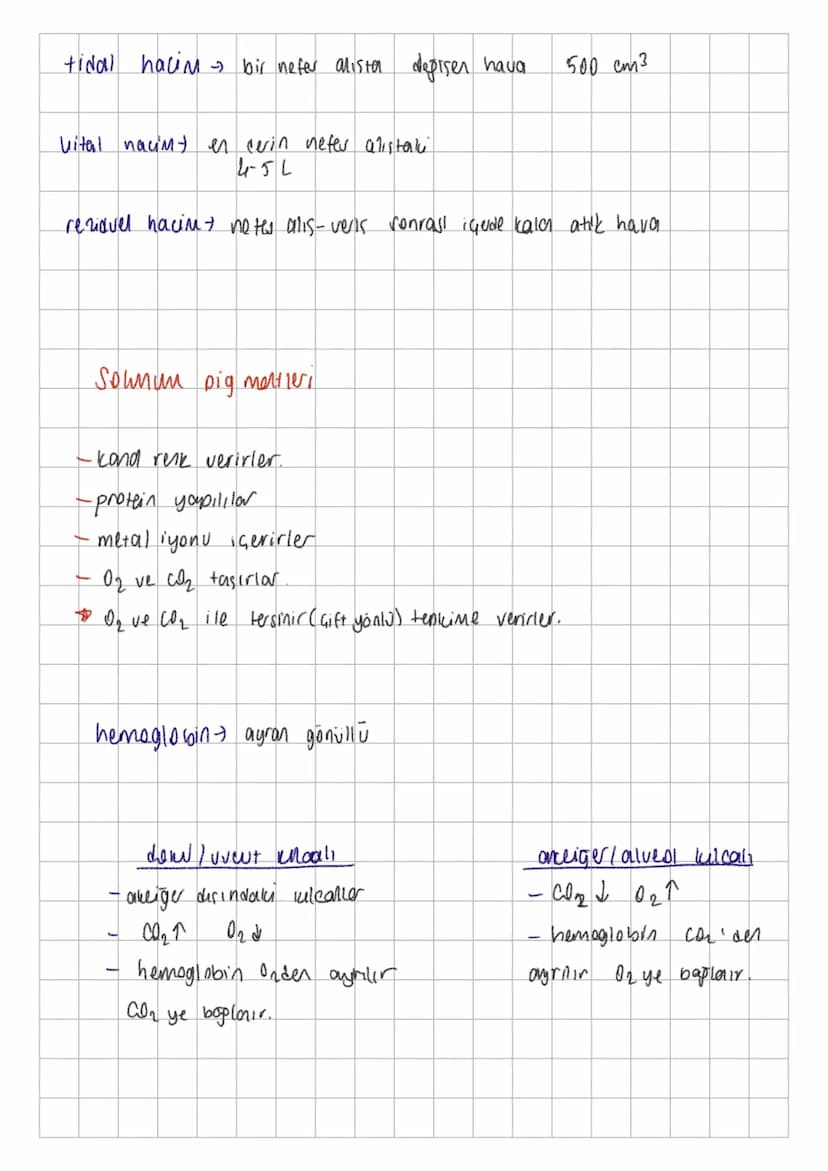 tidal hacim → bir nefes alışta değişen hava 500 cm³
vital hacim → en derin nefes alıştaki
4-5 L
rezidüel hacim → nefes alış-veriş sonrası içeride kalan atık hava
Solunum pigmentleri
- kana renk verirler.
- protein yapılılar
- metal iyonu içerirler
- O₂ ve CO₂ taşırlar.
* O₂ ve CO₂ ile tersinir (çift yönlü) tepkime verirler.
hemoglobin → ayran gönüllü
doku / vücut kılcalı
- akciğer dışındaki kılcallar
- CO₂ ↑ O₂ ↓
- hemoglobin O₂den ayrılır
CO₂ ye bağlanır.
akciğer / alveol kılcalı
- CO₂ ↓ O₂ ↑
- hemoglobin CO₂'den
ayrılır O₂ ye bağlanır.